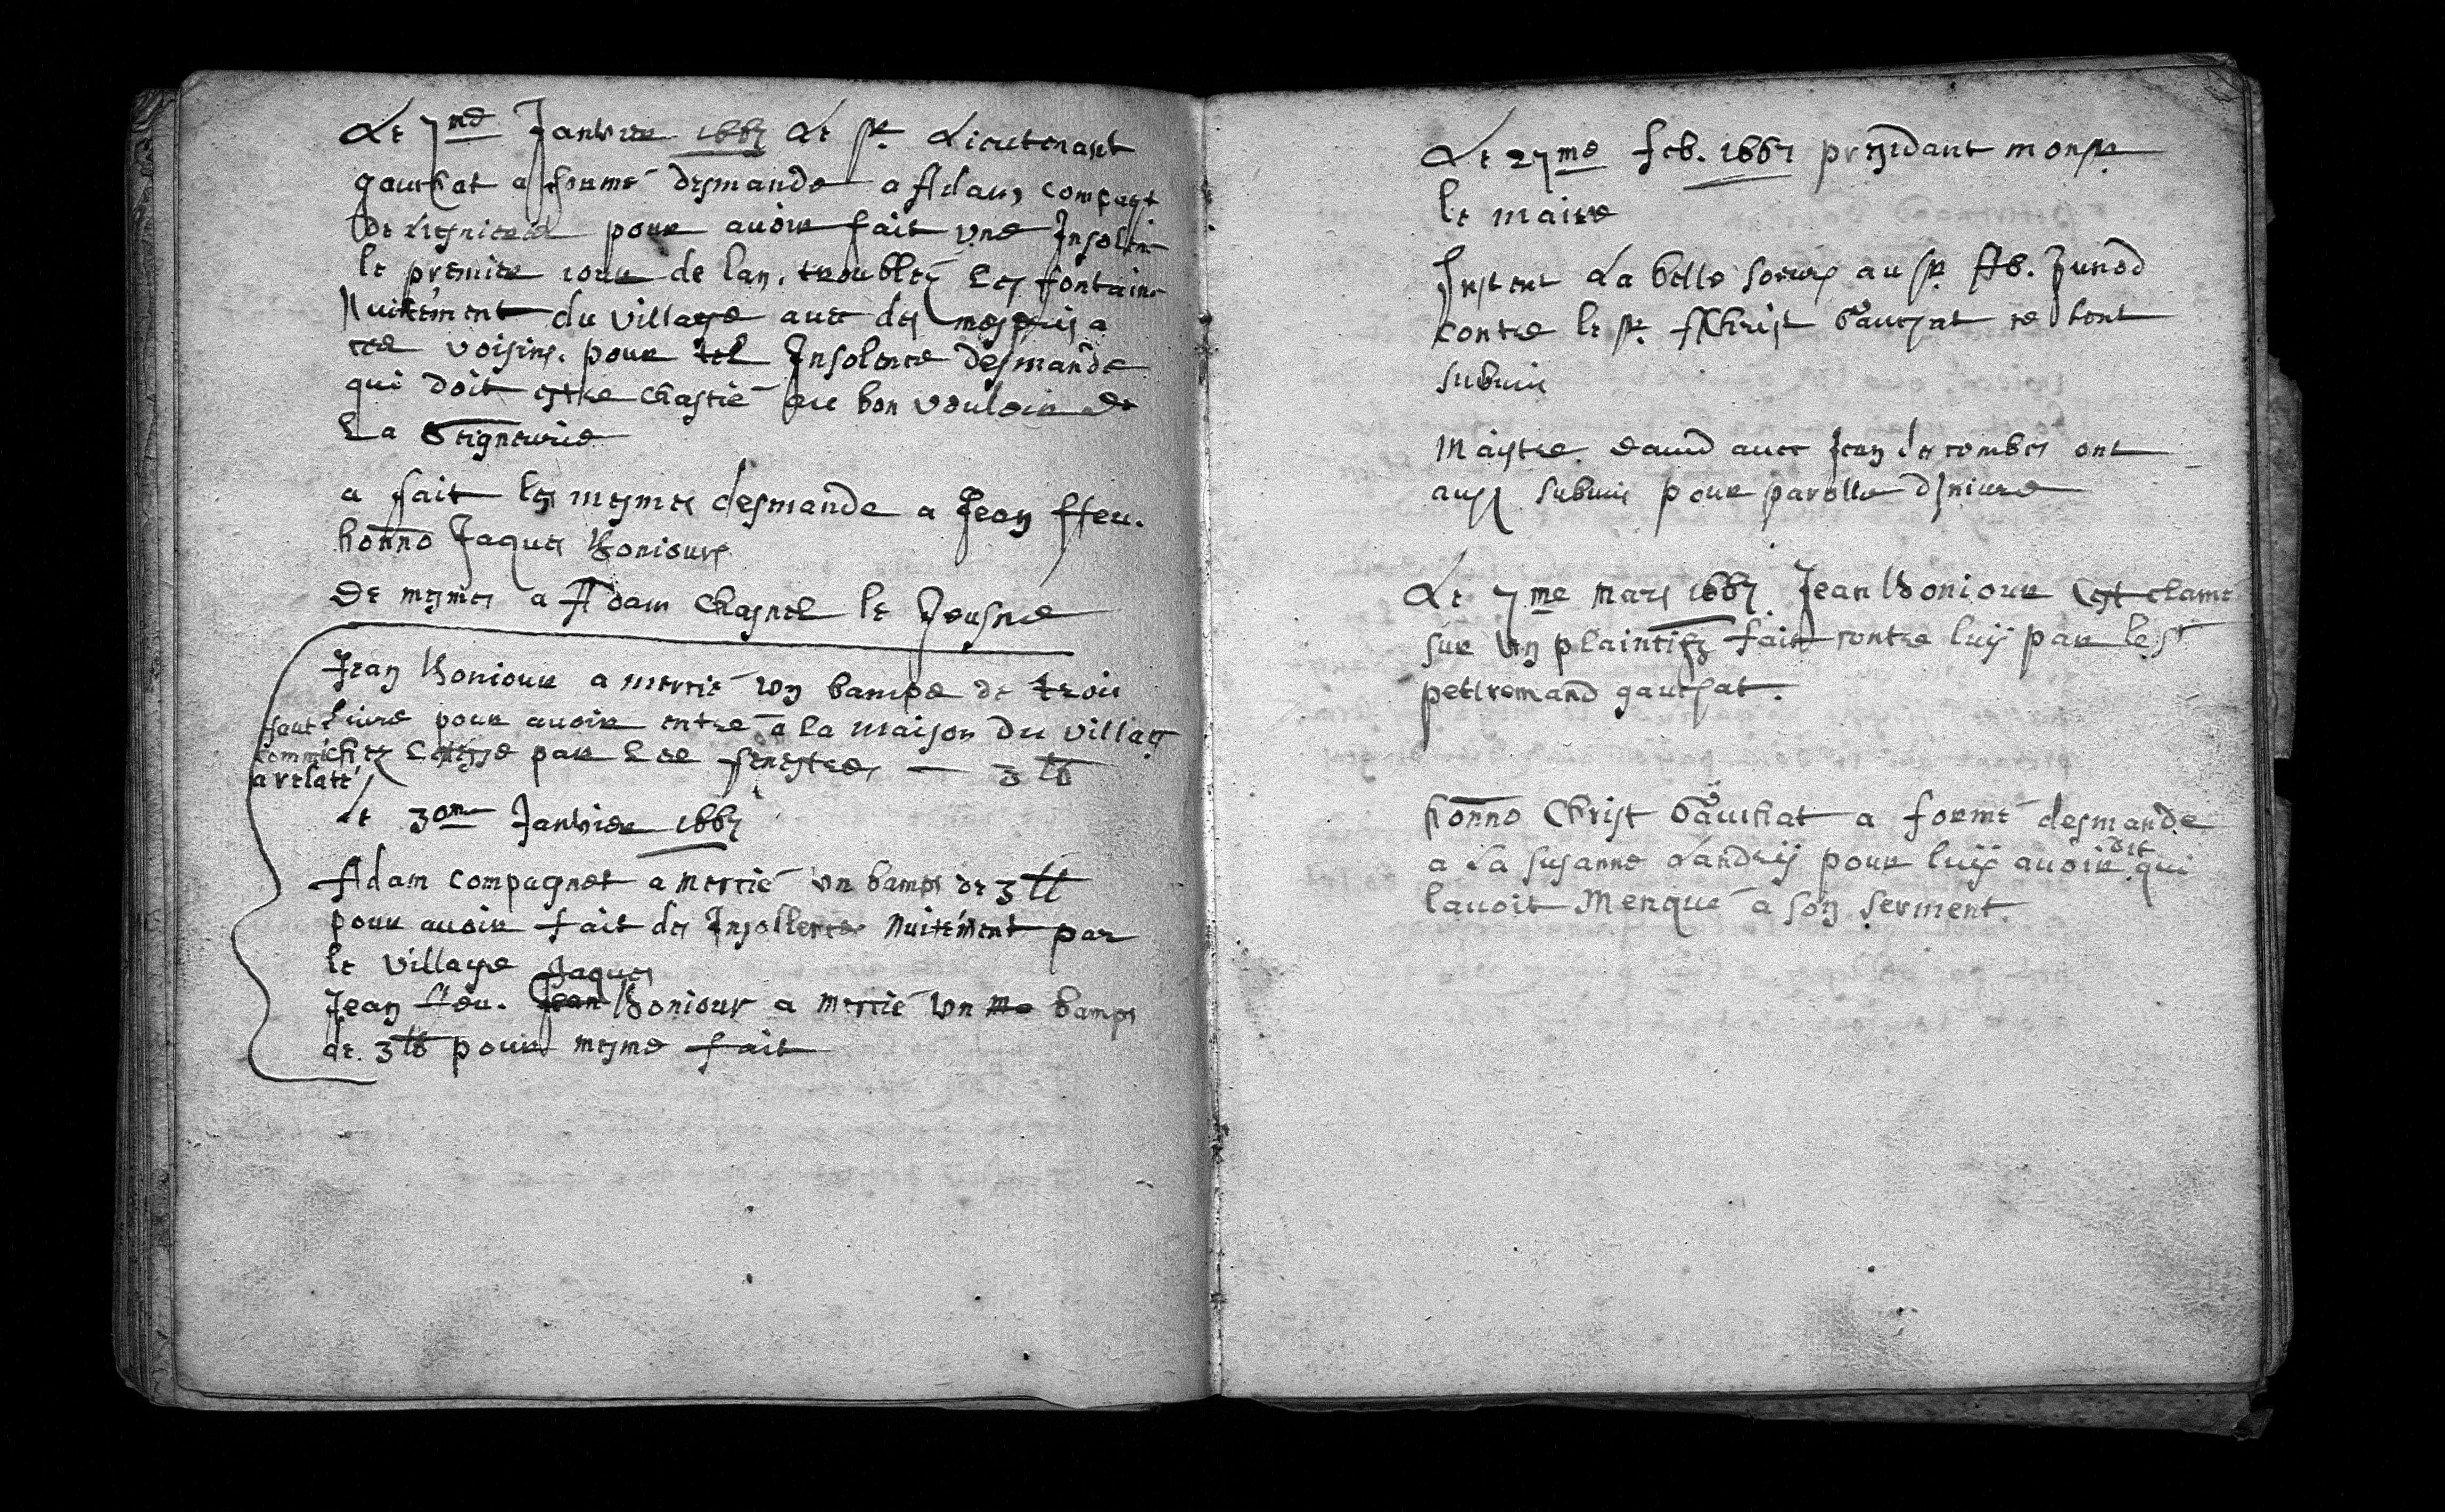 Le 7me Janvier 1667 Le Sr. Lieutenant
gauchat a formé desmande a Adam compagt
de Lignieres pour avoir fait une Insolen
le premier iour de lan. troubles les fontaine
Nuitement du village avec des mespris a
ces voisins. pour tel Insolence desmande
qui doit estre chastié au bon vouloir de
La Seigneurie
a fait les mesmes desmande a Jean ffeu.
honno Jaques Boniours
De mesmes a Adam Chasnel le Jeusne
Jean Boniour a mercié un bampe de trois
livre pour avoir entré a la maison du villag
chez par les fenestres — 3 lb
faut
comme
a relatté
Le 30me Janvier 1667
Adam compagnet a mercié un bamps de 3 ll
pour avoir fait des Insollences Nuitément par
le village
Jaques
Jean ffeu. Jean Boniour a mercié un me bamps
de. 3 lb pour mesme fait
Le 27me feb. 1667 presidant monsr
le maire
Instent La belle soeurs au Sr. Ab. Junod
contre le Sr. Christ Gauchat ce sont
submis
Maistre david avec Jean des combes ont
aussi submis pour parolle d'Iniure
Le 7me Mars 1667 Jean Boniour c'est clamé
sur un plaintifz fait contre luÿ par le Sr
petiremand gauchat.
honno Christ Gauchat a formé desmande
a La Susanne Landrÿ pour luÿ avoir dit qui
lavoit Menqué a son serment.